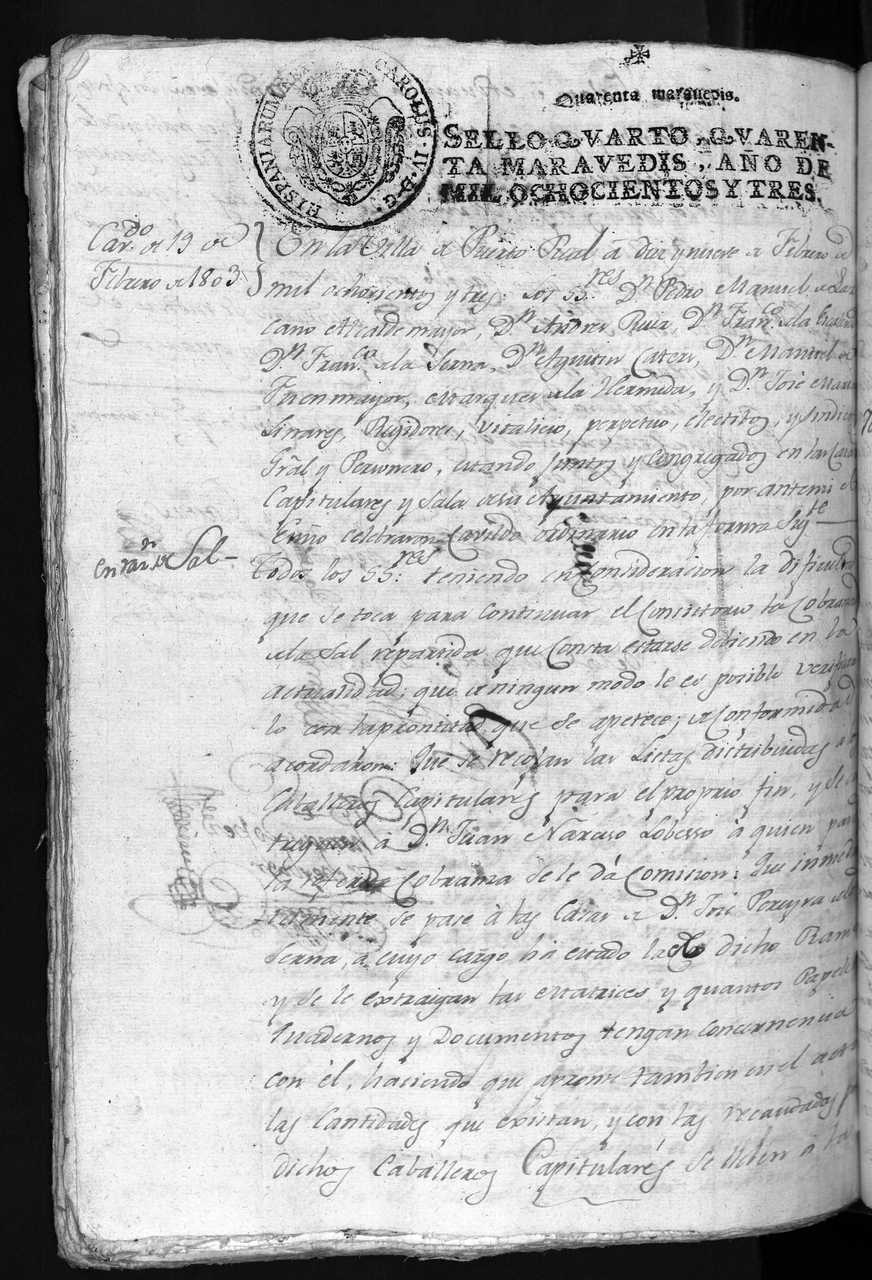 HISPANIARUM REX CAROLUS·IV·D·G·
Quarenta maravedis.
SELLO QVARTO, QVAREN-
TA MARAVEDIS, AÑO DE
MIL OCHOCIENTOS Y TRES.
Cav.do de 19 de
Febrero de 1803
En la Villa de Puerto Real à diez y nueve de Febrero de
mil ochocientos y tres: los SS.res Dn Pedro Manuel de
cano Alcalde mayor, Dn Andres Ruiz, Dn Fran.co de la
Dn Fran.co de la Serna, Dn Agustin Dn Manuel de
Fuenmayor, Marques de la Hermida, y Dn José Maria
Linares, Regidores, vitalicio, perpetuo, electitos, y Sindico
Gral y Personero, estando juntos y congregados en las Casas
Capitulares y Sala de su Ayuntamiento, por ante mi el
Essno celebraron Cavildo ordinario en la forma Sigte
Sal
Todos los SS.res teniendo en consideracion la dificultad
que se toca para continuar el Concistorio la Cobranza
de la Sal repartida que Consta estarse debiendo en la
actualidad; que de ningun modo le es posible verificar
lo con la prontitud que se apetece; de conformidad
acordaron: Que se recojan las Listas distribuidas a
Caballeros Capitulares para el proprio fin, y se
treguen à Dn Juan Narciso Lobesso à quien para
la referida Cobranza se le dá Comision: Que inmedia
tamente se pase à las Casas de Dn José Pereyra de la
Serna, à cuyo cargo ha estado la de dicho Ramo
y se le extraigan las Matrices y quantos Papeles
Quadernos y Documentos tengan concernencia
con él, haciendo que apronte tambien en el acto
las Cantidades que existan, y con las recaudadas por
dichos Caballeros Capitulares se lleben à la